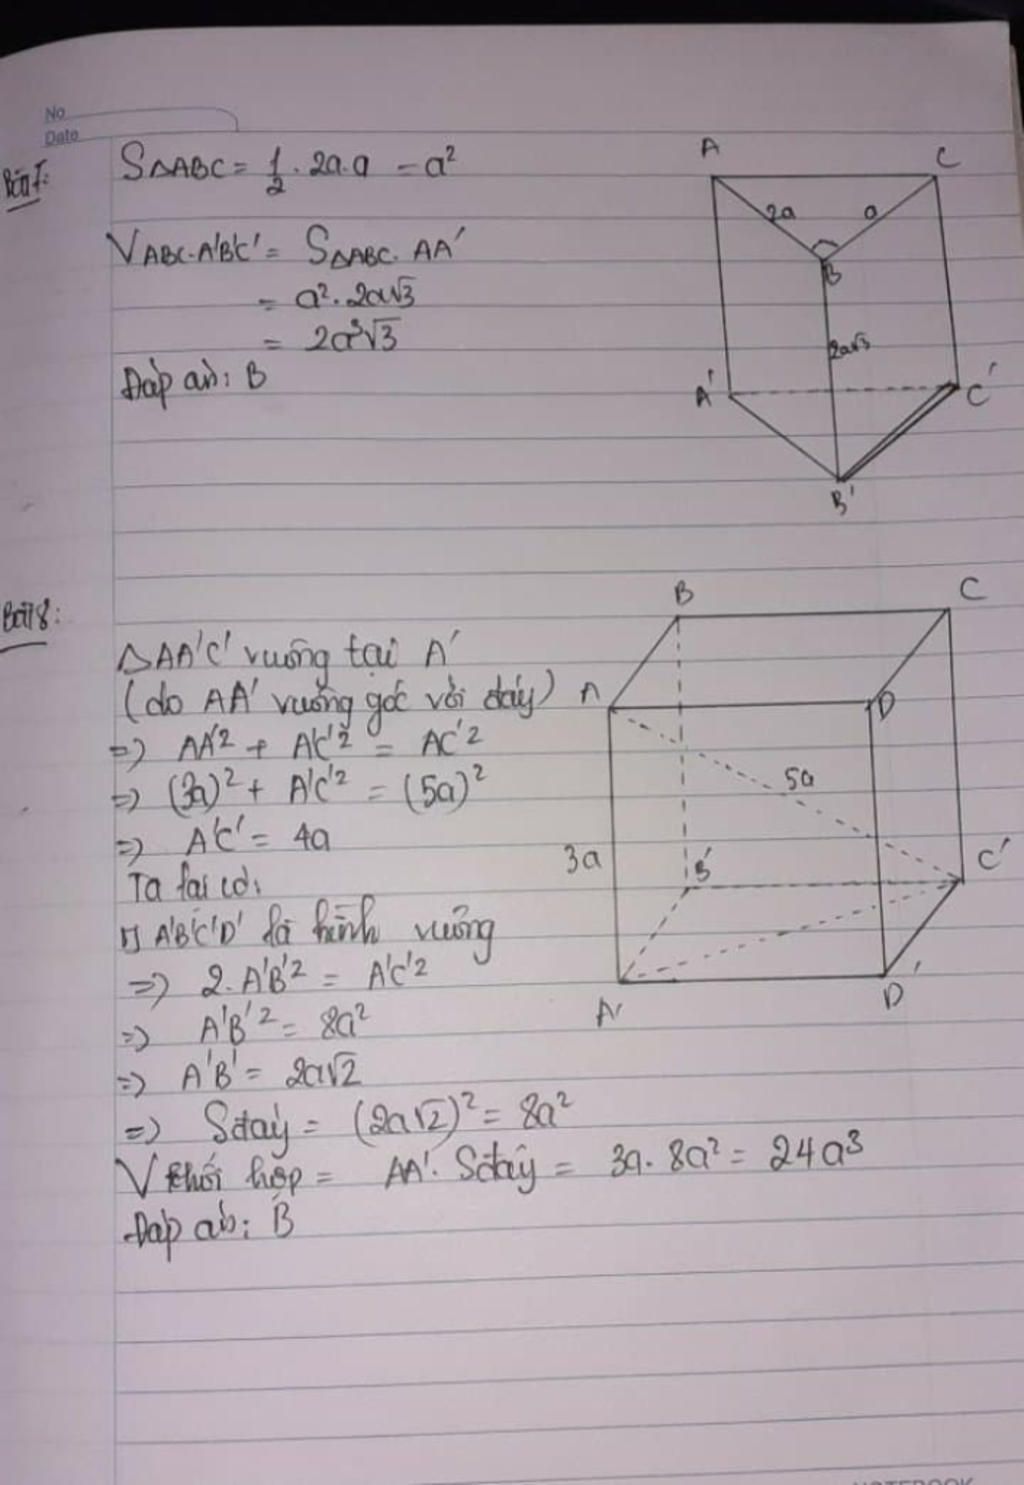 No
Date
Bài 7:
SΔABC = 1/2 . 2a.a = a²
VABC.A'B'C' = SΔABC. AA'
= a². 2a√3
= 2a³√3
Đáp án: B
A
C
2a
a
B
2a√3
A'
C'
B'
Bài 8:
ΔAA'C' vuông tại A'
(do AA' vuông góc với đáy)
=> AA'² + A'C'² = AC'²
=> (3a)² + A'C'² = (5a)²
=> A'C' = 4a
Ta lại có:
A'B'C'D' là hình vuông
=> 2.A'B'² = A'C'²
=> A'B'² = 8a²
=> A'B' = 2a√2
=> Sđáy = (2a√2)² = 8a²
V khối hộp = AA'. Sđáy = 3a. 8a² = 24a³
Đáp án: B
B
C
A
D
5a
3a
B'
C'
A'
D'
NOTEBOOK